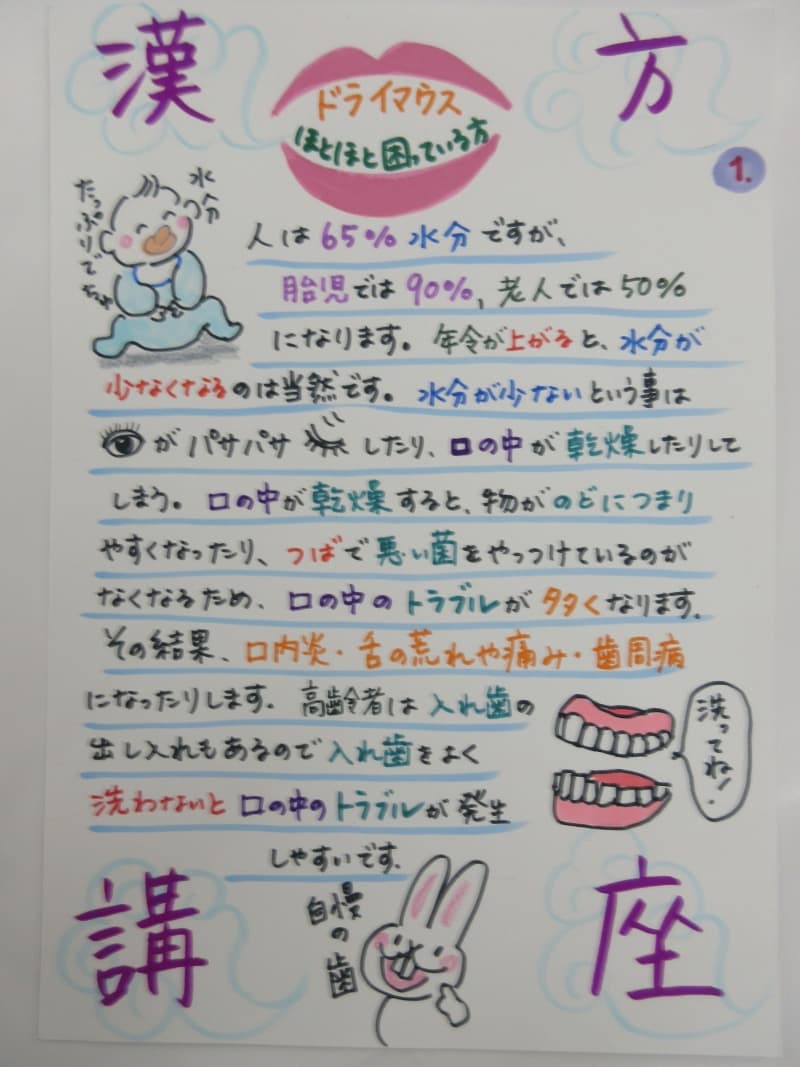 漢方
ドライマウス
ほとほと困っている方
1.
水分
たっぷりでちゅ
人は65%水分ですが、
胎児では90%,老人では50%
になります。年令が上がると、水分が
少なくなるのは当然です。水分が少ないという事は
がパサパサしたり、口の中が乾燥したりして
しまう。口の中が乾燥すると、物がのどにつまり
やすくなったり、つばで悪い菌をやっつけているのが
なくなるため、口の中のトラブルが多くなります.
その結果、口内炎・舌の荒れや痛み・歯周病
になったりします.高齢者は入れ歯の
出し入れもあるので入れ歯をよく
洗わないと口の中のトラブルが発生
しやすいです.
洗ってね!
自慢の歯
講座